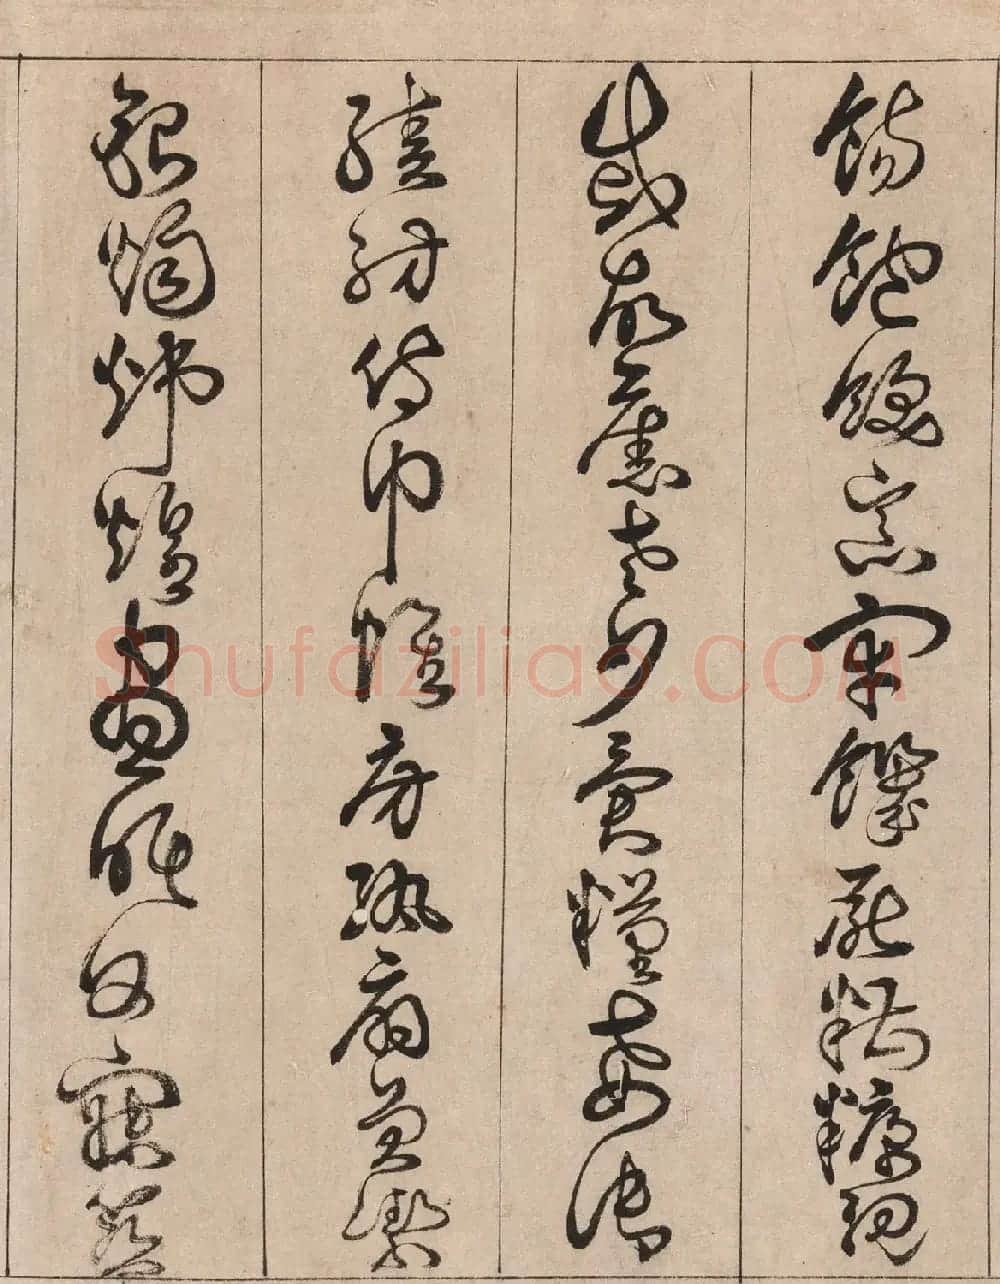 腸飽飫烹宰饑厭糟糠親
戚故舊老少異糧妾御
績紡侍巾帷房紈扇員潔
銀燭煒煌晝眠夕寐籃
Shufaziliao.COM